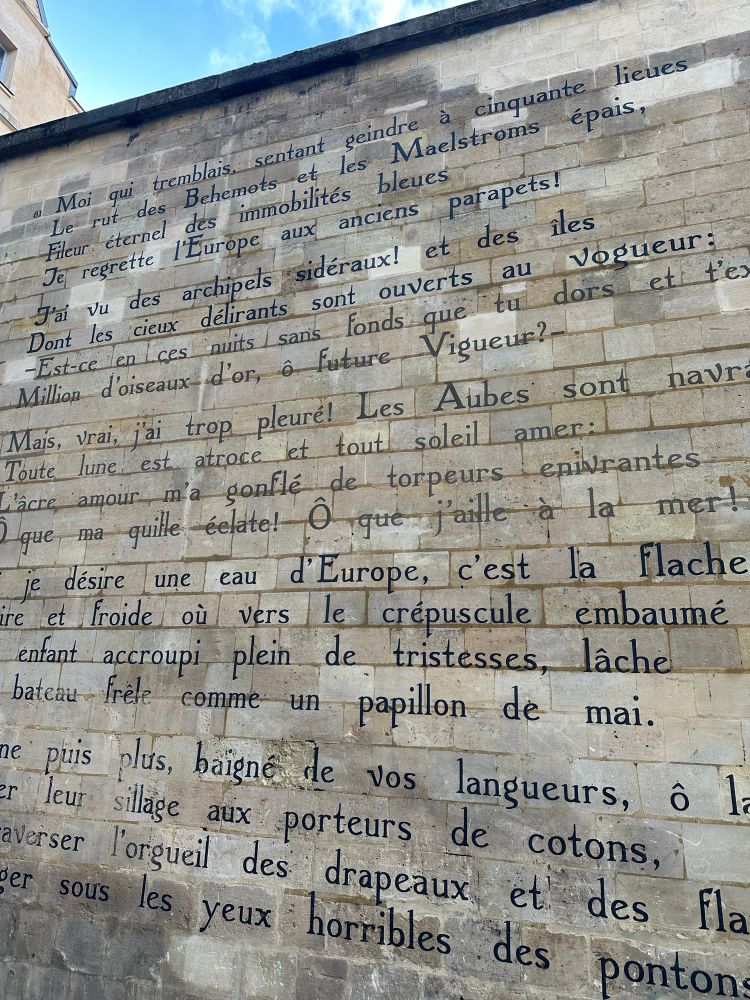 81 Moi qui tremblais, sentant geindre à cinquante lieues
Le rut des Behemots et les Maelstroms épais,
Fileur éternel des immobilités bleues
Je regrette l'Europe aux anciens parapets!
J'ai vu des archipels sidéraux! et des îles
Dont les cieux délirants sont ouverts au vogueur:
-Est-ce en ces nuits sans fonds que tu dors et t'ex
Million d'oiseaux d'or, ô future Vigueur?-
Mais, vrai, j'ai trop pleuré! Les Aubes sont navra
Toute lune est atroce et tout soleil amer:
L'âcre amour m'a gonflé de torpeurs enivrantes
Ô que ma quille éclate! Ô que j'aille à la mer!
je désire une eau d'Europe, c'est la flache
ire et froide où vers le crépuscule embaumé
enfant accroupi plein de tristesses, lâche
bateau frêle comme un papillon de mai.
ne puis plus, baigné de vos langueurs, ô la
er leur sillage aux porteurs de cotons,
raverser l'orgueil des drapeaux et des fla
ger sous les yeux horribles des pontons